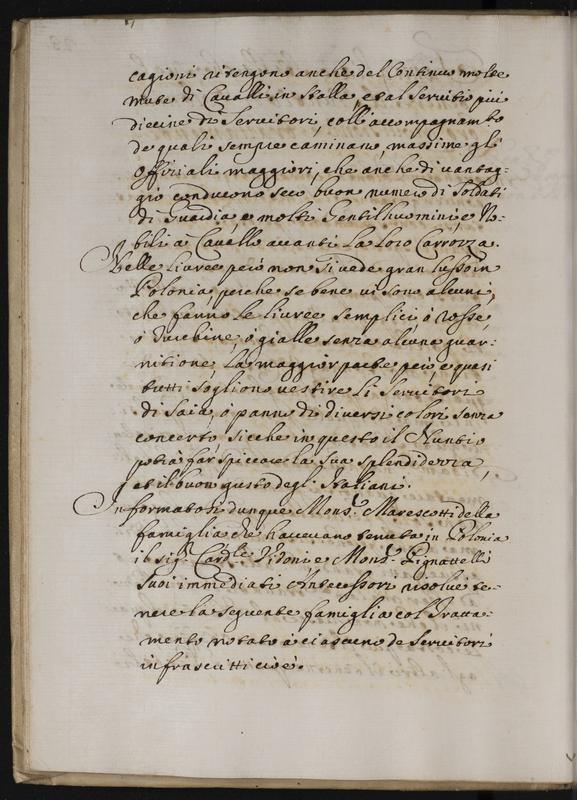 cagioni vi tengono anche del Continuo molte
mute di Cavalli in stalla, et al servitio più
diecine di Servitori, coll'accompagnam.to
de quali sempre caminano, massime gl'
Offitiali maggiori, che anche di vantag-
gio conducono seco buon numero di Soldati
di Guardia, e molti Gentilhuomini e No-
bili à Cavallo avanti la loro Carrozza.
Nelle livree però non si vede gran lusso in
Polonia, perche se bene vi sono alcuni,
che fanno le livree semplici ò rosse,
ò turchine, ò gialle senza alcuna guar-
nitione, la maggior parte però, e quasi
tutti sogliono vestire li Servitori
di Saia, ò panno di diversi colori senza
concerto, sicche in questo il Nuntio
potrà far spiccare la sua splendidezza,
et il buon gusto degl'Italiani.
Informatosi dunque Mons.r Marescotti della
famiglia che havevano tenuta in Polonia
il sig.r Card.le Vidoni e Mons.r Pignattelli
suoi immediati Antecessori risolvè te-
nere la seguente famiglia col Tratta-
mento notato à ciascuno de Servitori
infrascritti cioè.